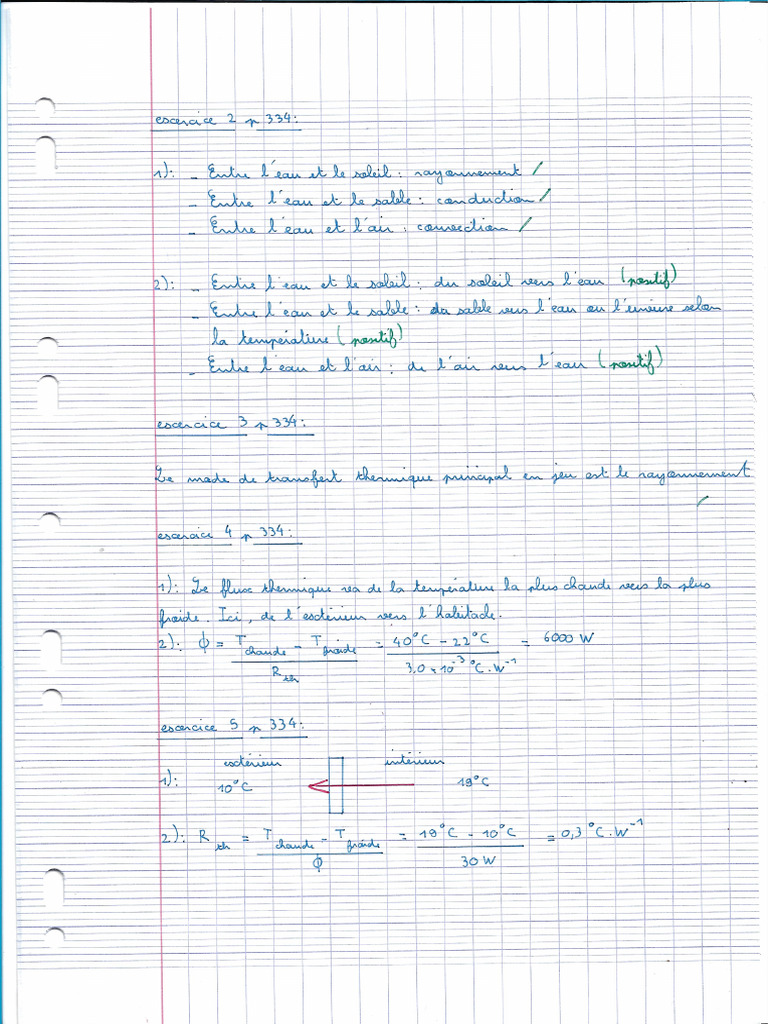 exercice 2 p 334:
1): - Entre l'eau et le soleil : rayonnement /
- Entre l'eau et le sable : conduction /
- Entre l'eau et l'air : convection /
2): - Entre l'eau et le soleil : du soleil vers l'eau (positif)
- Entre l'eau et le sable : du sable vers l'eau ou l'inverse selon
la température (positif)
- Entre l'eau et l'air : de l'air vers l'eau (positif)
exercice 3 p 334:
Le mode de transfert thermique principal en jeu est le rayonnement /
exercice 4 p 334:
1): Le flux thermique va de la température la plus chaude vers la plus
froide. Ici, de l'extérieur vers l'habitacle.
2): ϕ = (T chaude - T froide) / R th = (40°C - 22°C) / (3,0 × 10⁻³ °C.W⁻¹) = 6000 W
exercice 5 p 334:
extérieur intérieur
1): 10°C 19°C
2): R th = (T chaude - T froide) / ϕ = (19°C - 10°C) / 30 W = 0,3 °C.W⁻¹